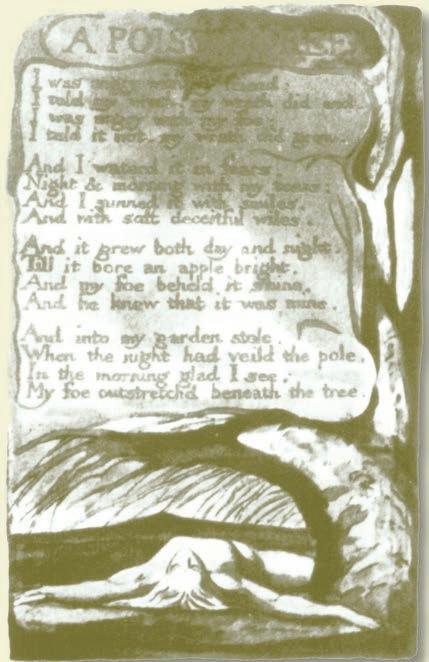 A POISON TREE.
I was angry with my friend:
I told my wrath, my wrath did end.
I was angry with my foe:
I told it not, my wrath did grow.
And I waterd it in fears,
Night & morning with my tears:
And I sunned it with smiles,
And with soft deceitful wiles.
And it grew both day and night.
Till it bore an apple bright.
And my foe beheld it shine,
And he knew that it was mine.
And into my garden stole.
When the night had veild the pole,
In the morning glad I see,
My foe outstretchd beneath the tree.